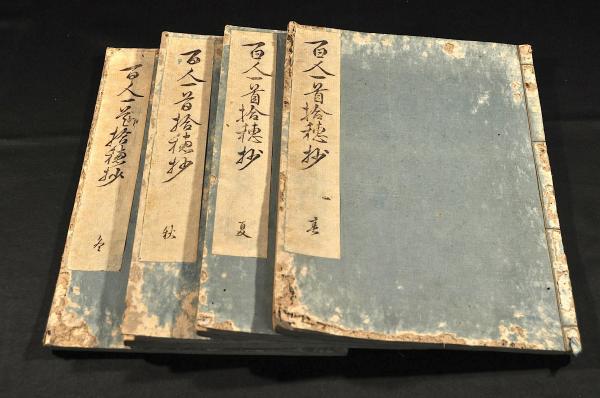 百人一首拾穂抄
春
百人一首拾穂抄
夏
百人一首拾穂抄
秋
百人一首拾穂抄
冬